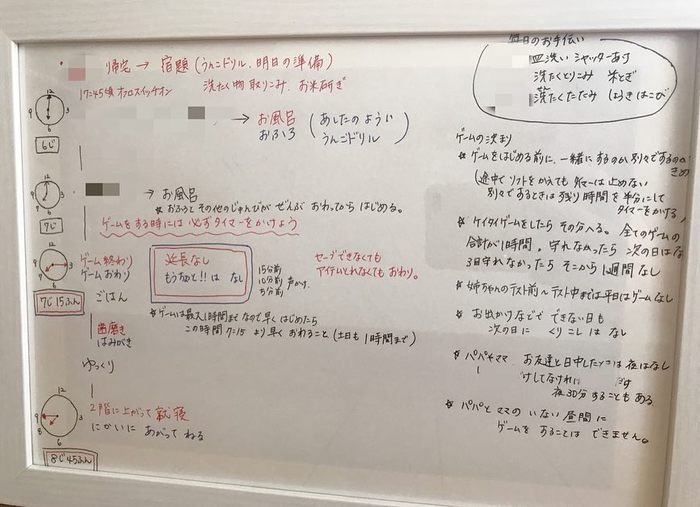 帰宅 → 宿題 (うんこドリル、明日の準備)
17:45頃 オフロスイッチオン 洗たく物 取りこみ、お米研ぎ
12
9 3
6
6じ
→ お風呂
おふろ
(あしたのようい
うんこドリル)
12
9 3
6
7じ
→ お風呂
※おふろとその他のじゅんびが ぜんぶ おわってから はじめる。
ゲームをする時には 必ずタイマーをかけよう
12
9 3
6
7じ15ふん
ゲーム終わり
ゲームおわり
ごはん
延長なし
もうちょっと!! は なし
15分前
10分前
5分前
声かけ
セーブできなくても
アイテムとれなくても おわり。
※ゲームは最大1時間まで なので 早く はじめたら
この時間 7:15 より早く おわること (土日も1時間まで)
歯磨き
はみがき
ゆっくり
12
9 3
8
6
8じ45ふん
2階に上がって就寝
にかいに あがって ねる
毎日のお手伝い
皿洗い シャッターあけ
洗たくとりこみ 米とぎ
洗たくたたみ はこび
ゲームの決まり
※ゲームをはじめる前に、一緒にするのか 別々でするのか きめ
(途中でソフトをかえても タイマーは止めない
別々であるときは 残り時間を半分にして
タイマーをかける)
※ケイタイゲームをしたら その分へる。全てのゲームの
合計が1時間。守れなかったら 次の日はな
3日守れなかったら そこから1週間なし
※姉ちゃんのテスト前〜テスト中までは平日はゲームなし
※お出かけなどで できない日も
次の日に くりこしは なし
※パパママ お友達と日中した 夜はなし
夜30分することもある
※パパと ママの いない 昼間に
ゲームを することは できません。